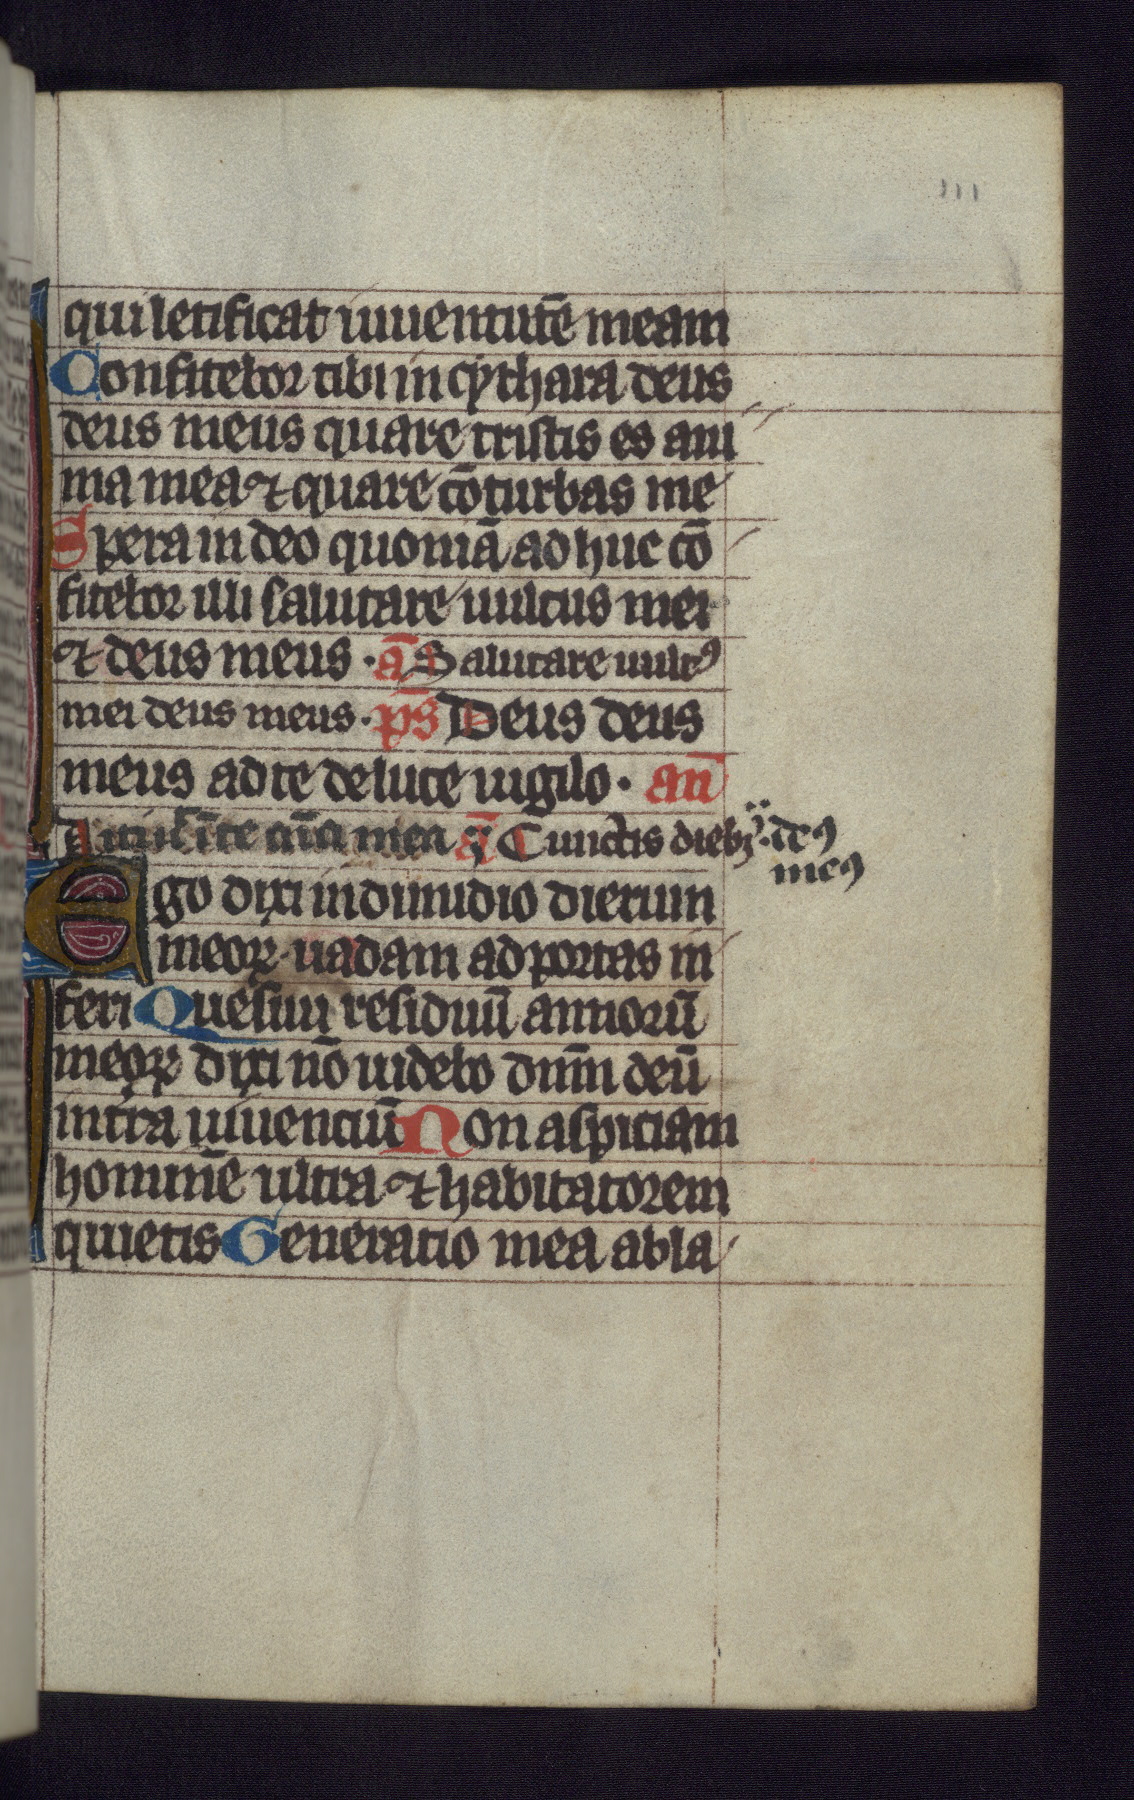 111
qui letificat iuuentutē meam
Confitebor tibi in cythara deus
deus meus quare tristis es ani
ma mea ⁊ quare cōturbas me
Spera in deo quoniā ad huc cō
fitebor illi salutare uultus mei
⁊ deus meus · ā Salutare uultꝰ
mei deus meus · p̄s Deus deus
meus ad te de luce uigilo · an̄
mea ā Cunctis diebꝫ · deꝰ
meꝰ
Ego dixi in dimidio dierum
meoꝝ uadam ad portas in
feri Quesiui residuū annorū
meoꝝ dixi nō uidebo dn̄m deū
in tr̄a uiuenciū Non aspiciam
hominē ultra ⁊ habitatorem
quietis Generatio mea abla